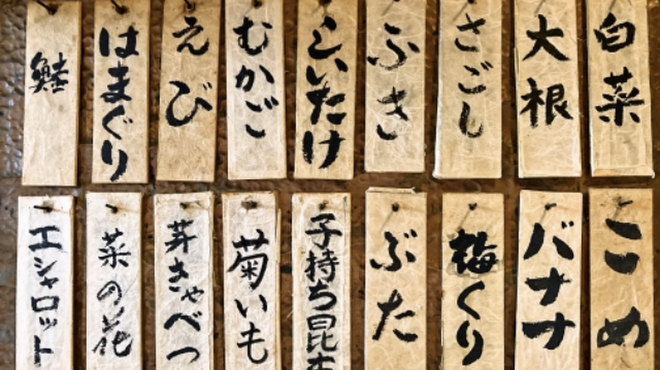 白菜
大根
さごし
ふき
しいたけ
むかご
えび
はまぐり
鮭
こめ
バナナ
梅くり
ぶた
子持ち昆布
菊いも
芽きゃべつ
菜の花
エシャロット